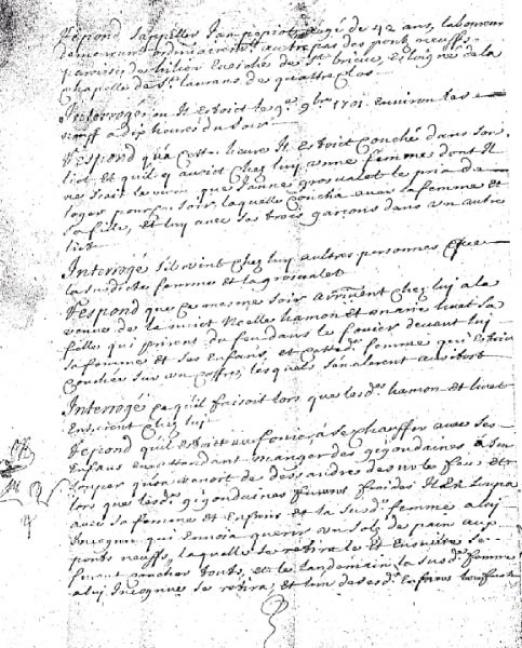 Repond s'appeller Jan pepiot agé de 42 ans, laboureur
demeurant ordinairemt. au trepas des ponts neuffs
paroisse de hilion Evesché de St. brieuc, Esloigné de la
chapelle de St. laurans de quattre
Interrogé ou Il Estoit le 9e. 9bre. 1701 environ les
neuff a dix heures du soir
Respond qu'a cette heure Il Estoit Couché dans son
lict Et quil y avoit Chez luy unne femme dont Il
ne scait le nom que Janne grovalet le pria de
loger pour un soir, laquelle coucha avec sa femme et
sa fille, et luy avec ses trois garçons dans un autre
lict
Interrogé sil vint Chez luy autres personnes que
la susdicte femme et la grovalet
Respond que ce mesme soir arrivent Chez luy a la
venue de la nuict Noelle hamon et marie livet sa
filles qui prirent du feu dans le fouier devant luy
sa femme et ses Enfans, et cette de. femme qui Estoit
Couchée sur un coffre, lesquels s'en alerent
Interrogé ce qu'il faisoit lors que lesds. hamon et livet
Entrerent Chez luy
Repond quil Estoit au fouier a se chauffer avec ses
Enfans en attendant manger des gigondaines a son
souper qu'on venoit de dessandre de sur le feu, et
lors que lesds. gigondaines furent froides Il En soupa
avec sa femme et Enfans et la susd. femme a luy
Incognue qui envoia querir un sols de pain aux
ponts neuffs, laquelle se retira le et Ensuitte se
furent coucher touts, et le landemain la susd. femme
a luy Incognue se retira, et lun de sesd. Enfans